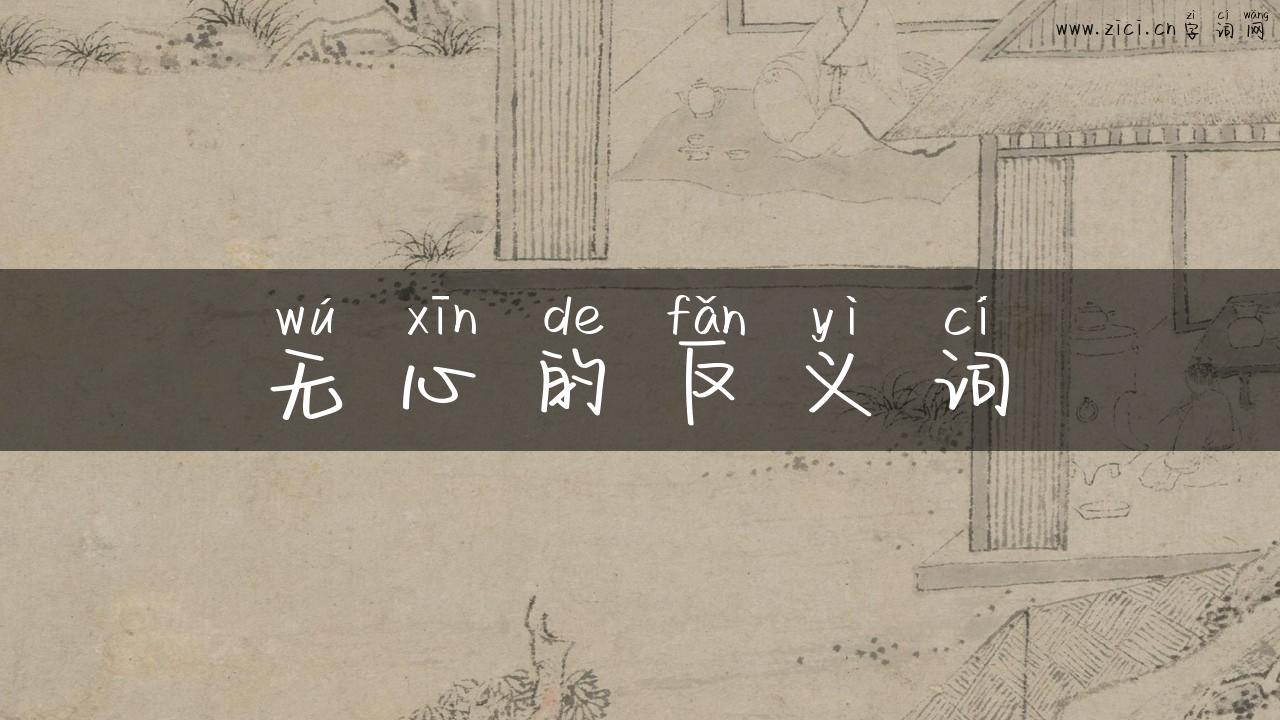 zì cí wǎng
www.zici.cn 字词网
wú xīn de fǎn yì cí
无心的反义词